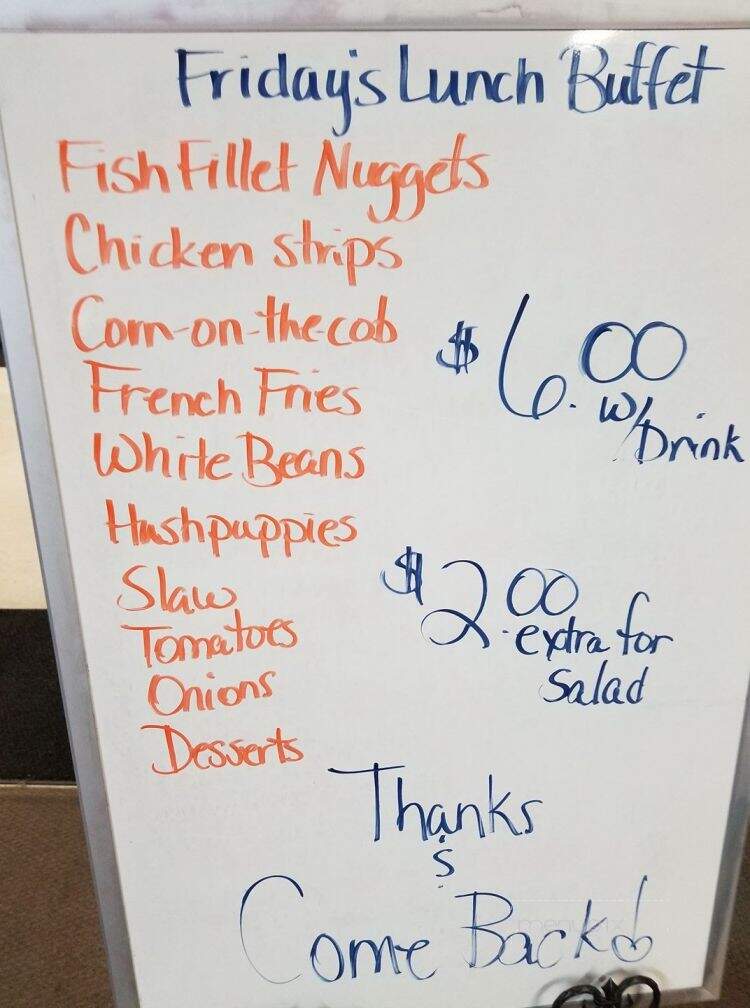 Friday's Lunch Buffet
Fish Fillet Nuggets
Chicken strips
Corn-on-the-cob
French Fries
White Beans
Hushpuppies
Slaw
Tomatoes
Onions
Desserts
$6.00
w/ Drink
$2.00
extra for
Salad
Thanks
&
Come Back!